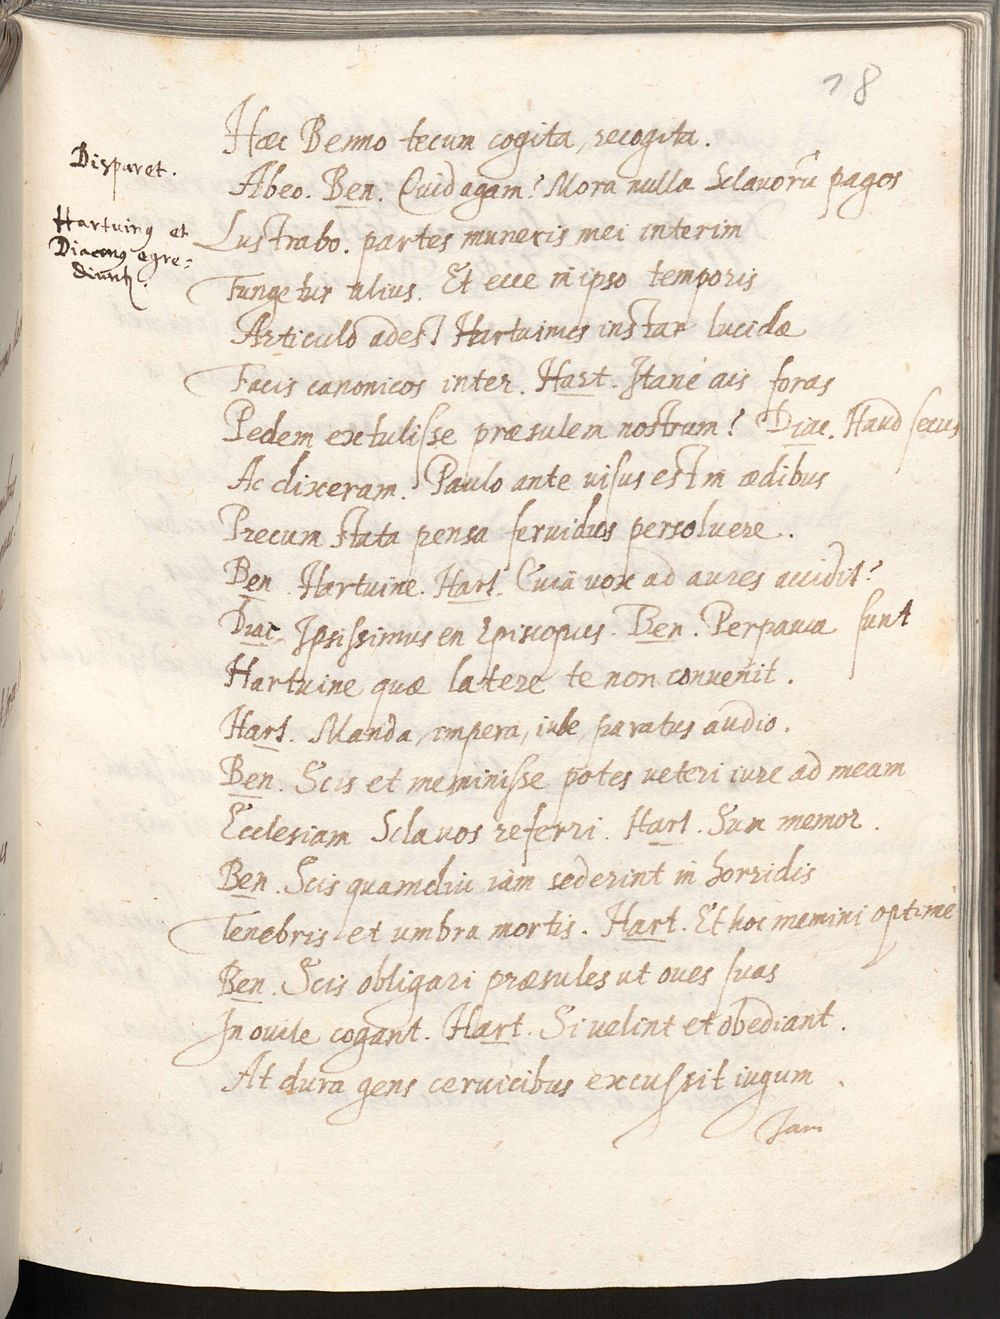 18
Hæc Benno tecum cogita, recogita.
Disparet.
Abeo. Ben. Quid agam? Mora nulla Sclauorũ pagos
Hartuinꝯ et
Diaconꝯ egre-
diunt.
Lustrabo. partes muneris mei interim
Fungetur alius. Et ecce in ipso temporis
Articulo adest Hartuinus instar lucidæ
Facis canonicos inter. Hart. Itane ais foras
Pedem extulisse præsulem nostrum? Diac. Haud secus
Ac dixeram. Paulo ante uisus est in ædibus
Precum stata pensa feruidus persoluere.
Ben. Hartuine. Hart. Cuiã vox ad aures accidit?
Diac. Ipsissimus en Episcopus. Ben. Perparua sunt
Hartuine quæ latere te non conuenit.
Hart. Manda, impera, iube, paratus audio.
Ben. Scis et meminisse potes veteri iure ad meam
Ecclesiam Sclauos referri. Hart. Sum memor.
Ben. Scis quamdiu iam sederint in horridis
Tenebris et umbra mortis. Hart. Et hoc memini optimè
Ben. Scis obligari præsules ut oues suas
In ouile cogant. Hart. Si uelint et obediant.
At dura gens ceruicibus excussit iugum.
Jam